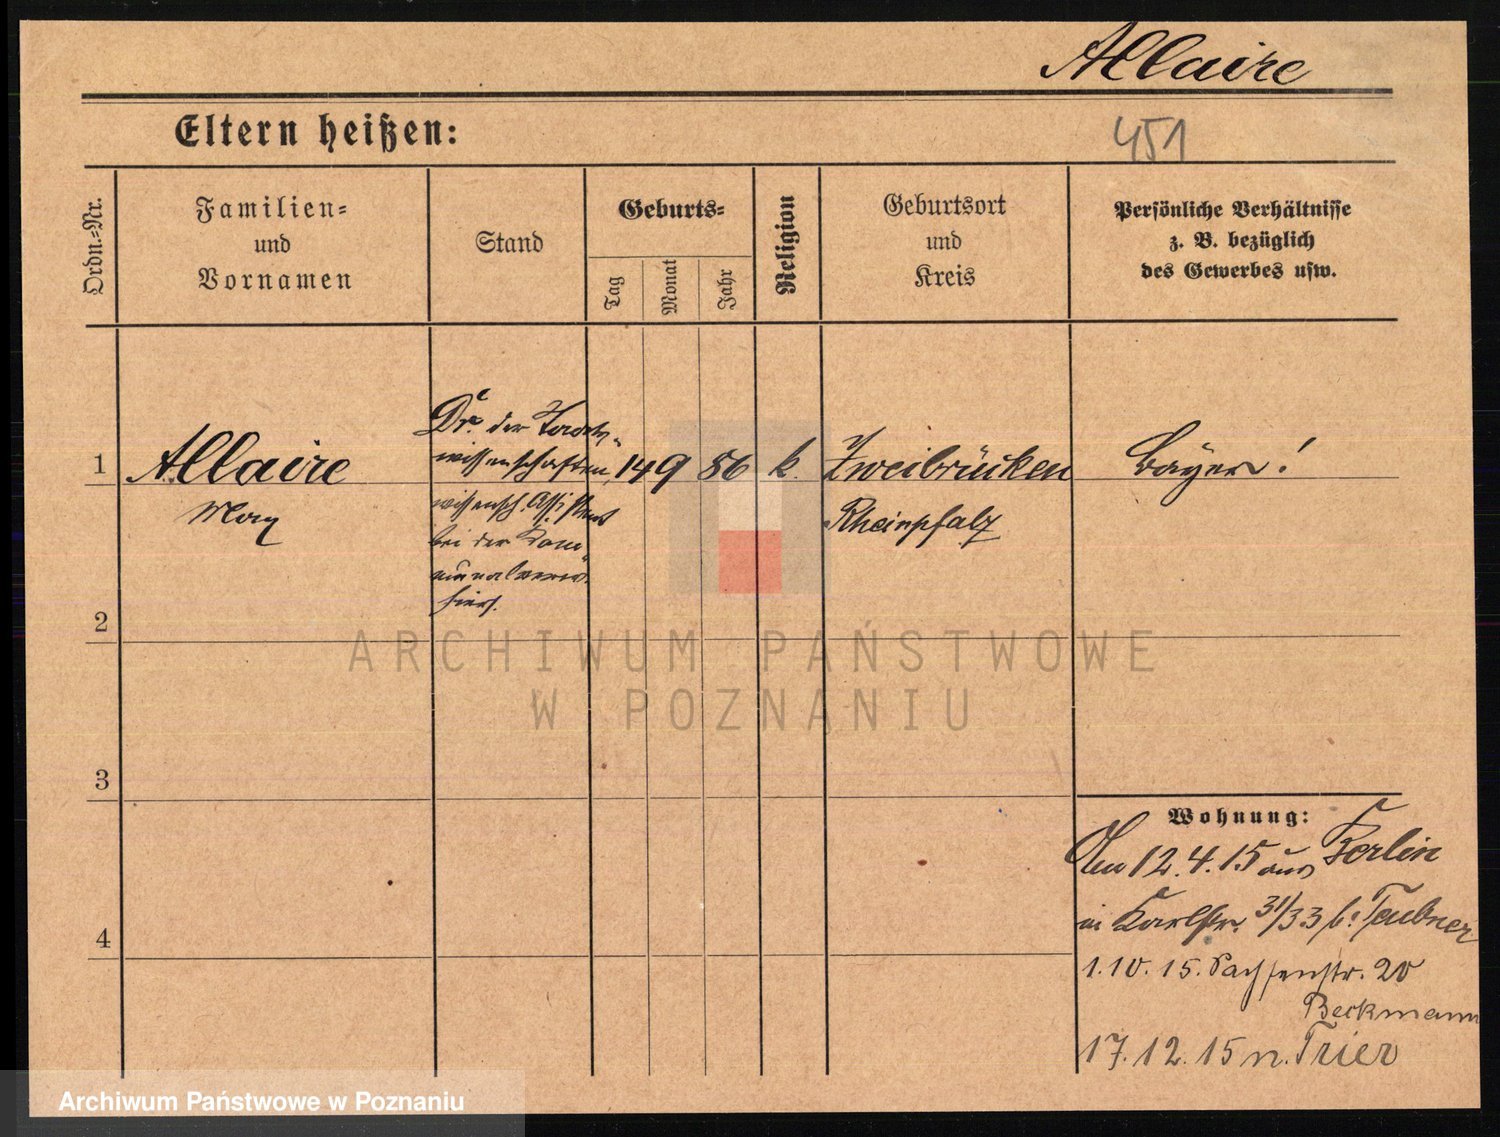 Allaire
Eltern heißen:
451
Ordn.=Nr.
Familien=
und
Vornamen
Stand
Geburts=
Tag
Monat
Jahr
Religion
Geburtsort
und
Kreis
Persönliche Verhältnisse
z. B. bezüglich
des Gewerbes usw.
1
Allaire
Max
Dr. der Staats-
wissenschaften,
wissensch. Assistent
bei der Kom-
munalverw.
hiers.
14 9 86
k.
Zweibrücken
Rheinpfalz
Bayer!
2
ARCHIWUM PAŃSTWOWE
W POZNANIU
3
Wohnung:
Am 12.4.15 aus Berlin
in Karlstr. 31/33 b. Taubner
1.10.15. Sachsenstr. 20
Beckmann
17.12.15 n. Trier
4
Archiwum Państwowe w Poznaniu